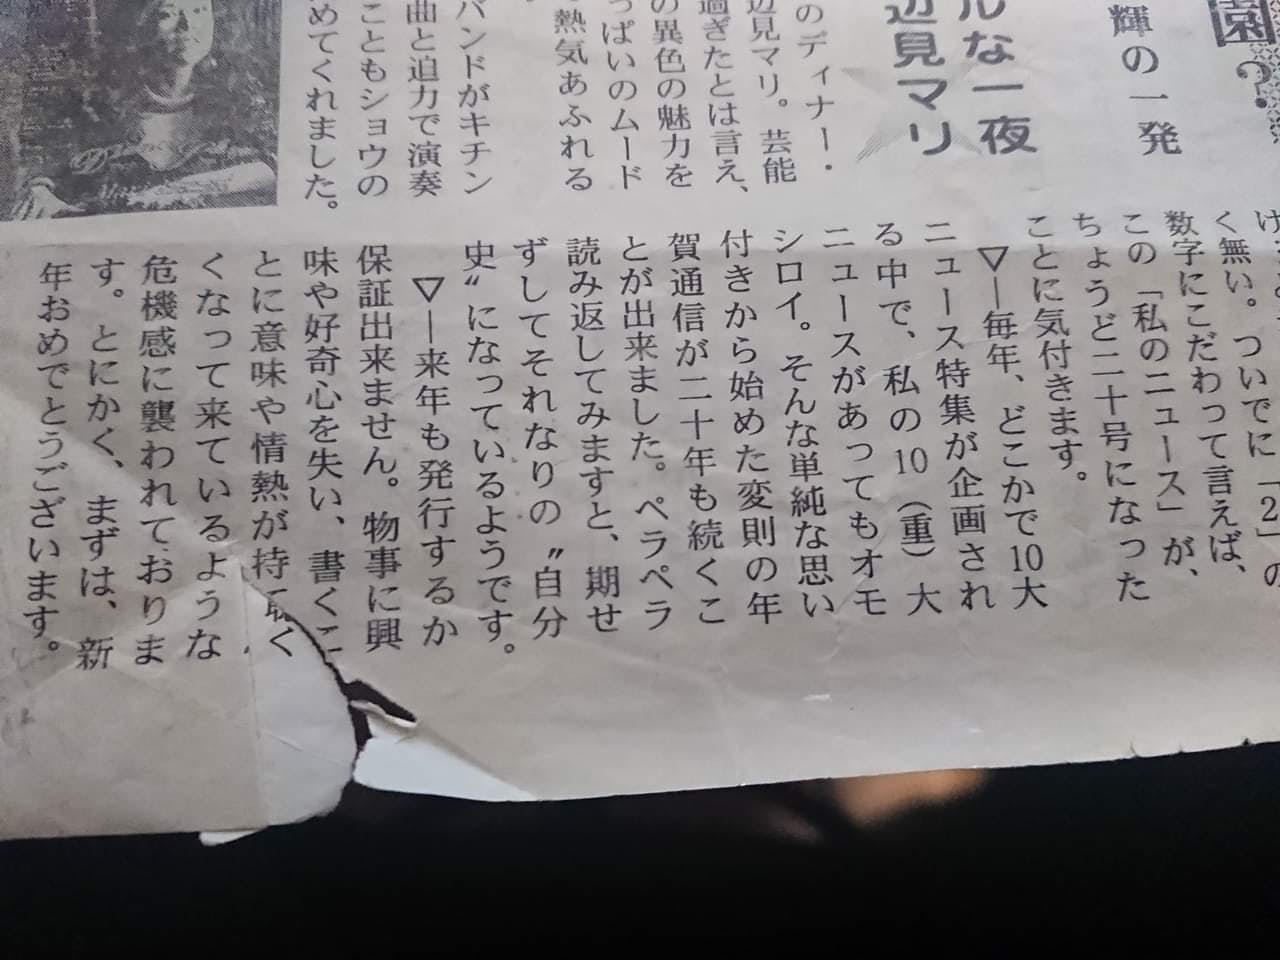 園?
輝の一発
ルな一夜
辺見マリ
のディナー・
辺見マリ。芸能
過ぎたとは言え、
の異色の魅力を
っぱいのムード
熱気あふれる
バンドがキチン
曲と迫力で演奏
こともショウの
めてくれました。
く無い。ついでに「2」の
数字にこだわって言えば、
この「私のニュース」が、
ちょうど二十号になった
ことに気付きます。
▽―毎年、どこかで10大
ニュース特集が企画され
る中で、私の10(重)大
ニュースがあってもオモ
シロイ。そんな単純な思い
付きから始めた変則の年
賀通信が二十年も続くこ
とが出来ました。ペラペラ
読み返してみますと、期せ
ずしてそれなりの〝自分
史〟になっているようです。
▽―来年も発行するか
保証出来ません。物事に興
味や好奇心を失い、書くこ
とに意味や情熱が持てなく
くなって来ているような
危機感に襲われておりま
す。とにかく、まずは、新
年おめでとうございます。